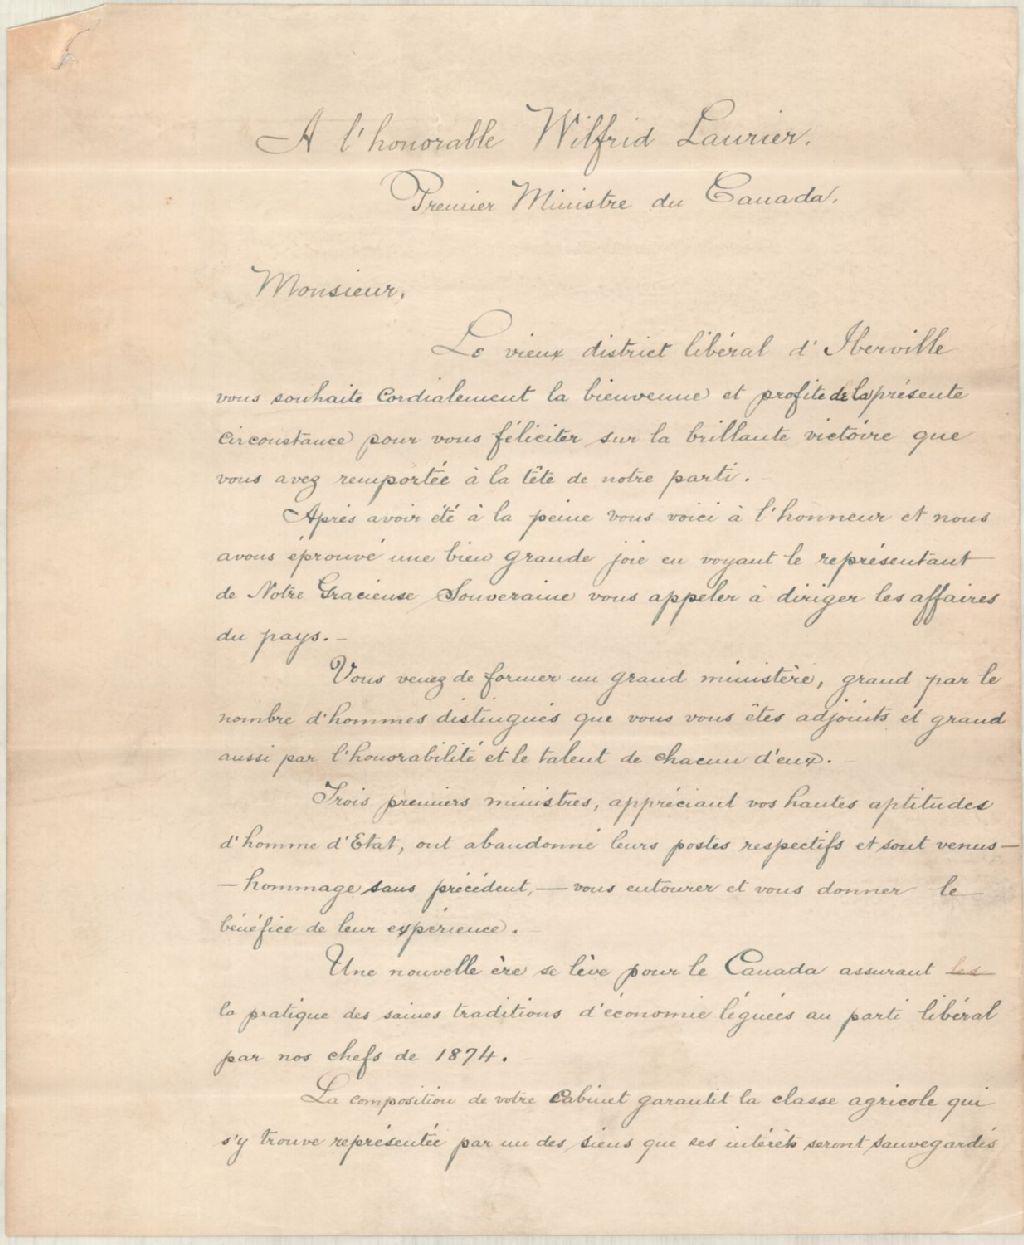 A l'honorable Wilfrid Laurier.
Premier Ministre du Canada.
Monsieur,
Le vieux district libéral d'Iberville
vous souhaite cordialement la bienvenue et profite de la présente
circonstance pour vous féliciter sur la brillante victoire que
vous avez remportée à la tête de notre parti. -
Après avoir été à la peine vous voici à l'honneur et nous
avons éprouvé une bien grande joie en voyant le représentant
de Notre Gracieuse Souveraine vous appeler à diriger les affaires
du pays. -
Vous venez de former un grand ministère, grand par le
nombre d'hommes distingués que vous vous êtes adjoints et grand
aussi par l'honorabilité et le talent de chacun d'eux. -
Trois premiers ministres, appréciant vos hautes aptitudes
d'homme d'Etat, ont abandonné leurs postes respectifs et sont venus -
- hommage sans précédent, - vous entourer et vous donner le
bénéfice de leur expérience. -
Une nouvelle ère se lève pour le Canada assurant les
la pratique des saines traditions d'économie léguées au parti libéral
par nos chefs de 1874.
La composition de votre cabinet garantit la classe agricole qui
s'y trouve représentée par un des siens que ses intérêts seront sauvegardés